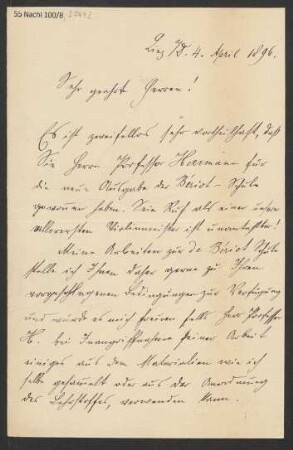 55 Nachl 100/B,
Linz a/D. 4. April 1896.
Sehr geehrte Herren!
Es ist zweifellos sehr vortheilhaft, daß
Sie Herrn Professor Hermann für
die neue Ausgabe der Bériot-Schule
gewonnen haben. Sein Ruf als einer unserer
allerersten Violinmeister ist unantastbar!
Meine Arbeiten zur de Bériot Schule
stelle ich Ihnen daher gerne zu Ihren
vorgeschlagenen Bedingungen zur Verfügung
und würde es mich freuen falls Herr Professor
H. bei Inangriffnahme seiner Arbeit
einiges aus dem Materialien wie ich
selbe gesammelt oder aus der Anordnung
des Lehrstoffes, verwenden kann.